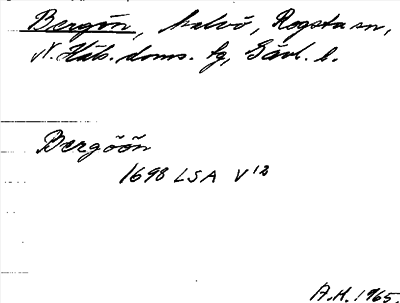 Bergön, halvö, Rogsta sn,
N. Häls. doms. tg, Gävl. l.
Bergöön
1698 LSA V12
A.H. 1965.